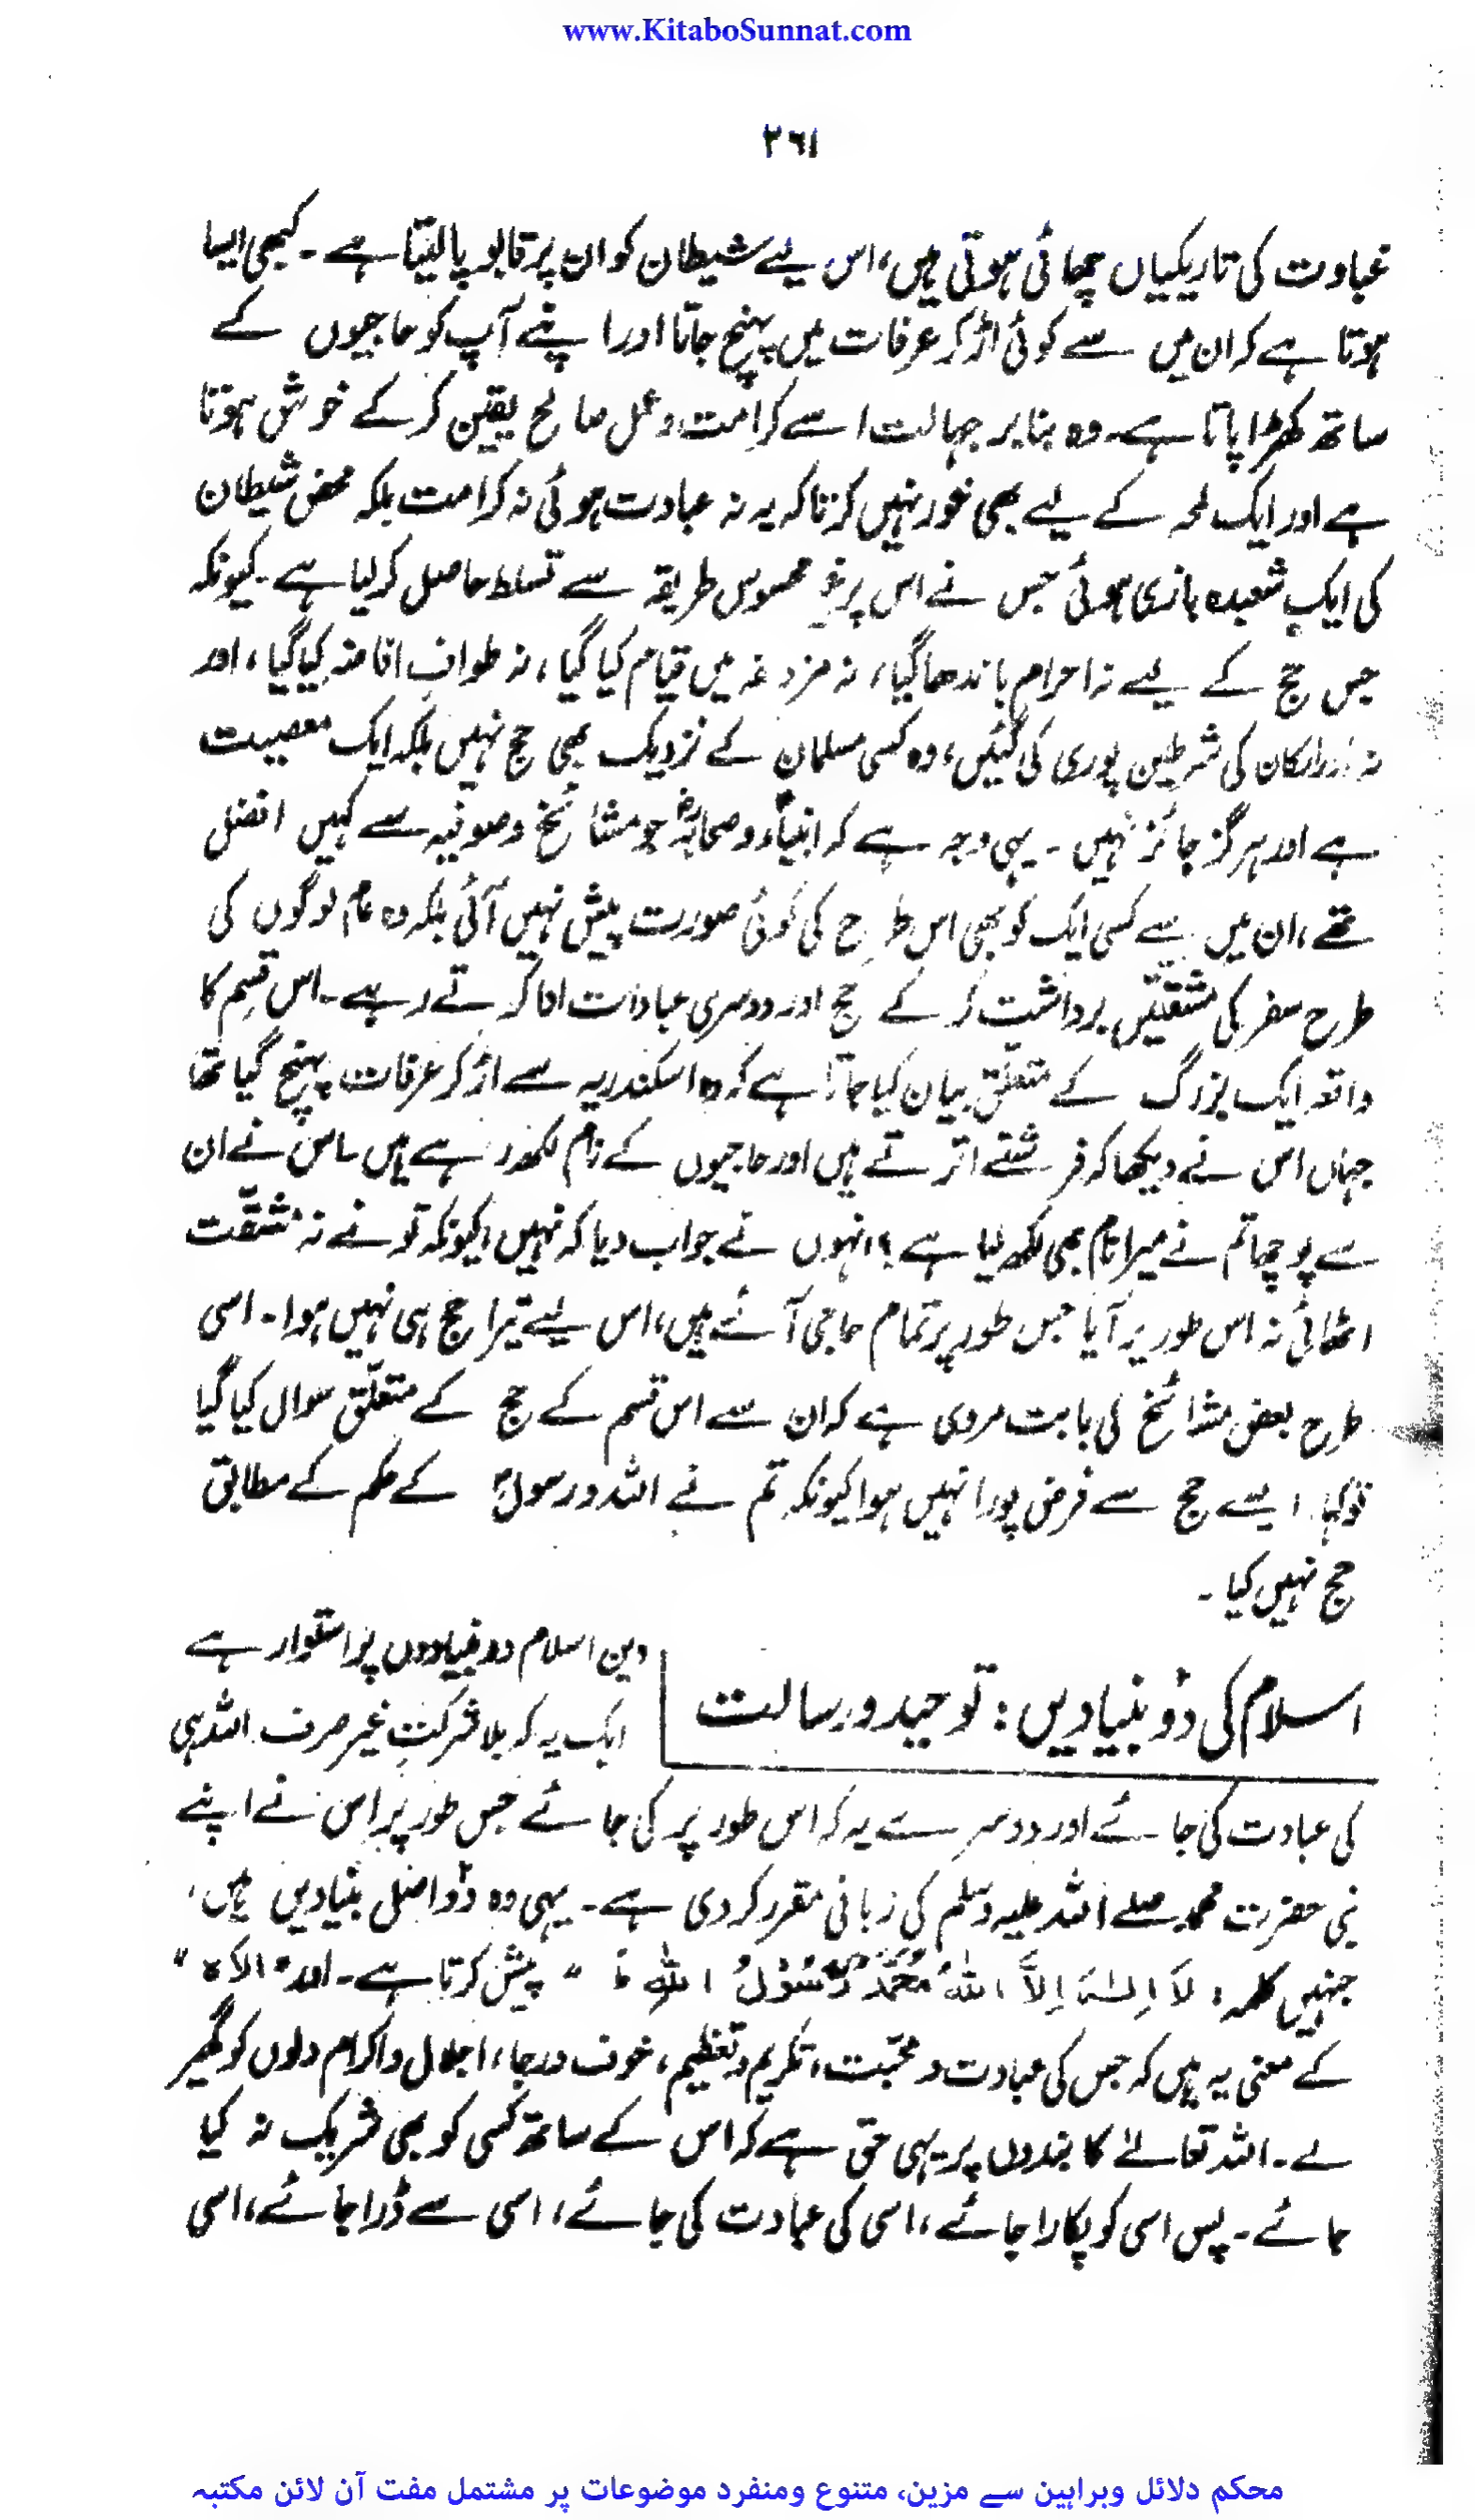 www.KitaboSunnat.com
۲۶۱
عبادت کی تاریکیاں چھائی ہوتی ہیں، اس لیے شیطان کو ان پر قابو پا لیتا ہے۔ کبھی ایسا
ہوتا ہے کہ ان میں سے کوئی اڑ کر عرفات میں پہنچ جاتا اور اپنے آپ کو حاجیوں کے
ساتھ کھڑا پاتا ہے۔ وہ بنا بر جہالت اسے کرامت و عمل صالح یقین کر کے خوش ہوتا
ہے اور ایک لمحہ کے لیے بھی غور نہیں کرتا کہ یہ نہ عبادت ہوئی نہ کرامت بلکہ محض شیطان
کی ایک شعبدہ بازی ہوئی جس نے اس پر غیر محسوس طریقہ سے تسلط حاصل کر لیا ہے۔ کیونکہ
جس حج کے لیے نہ احرام باندھا گیا، نہ مزدلفہ میں قیام کیا گیا، نہ طواف افاضہ کیا گیا، اور
نہ ارکان کی شرطیں پوری کی گئیں، وہ کسی مسلمان کے نزدیک بھی حج نہیں بلکہ ایک معصیت
ہے اور ہرگز جائز نہیں۔ یہی وجہ ہے کہ انبیاءؑ و صحابہؓ جو مشائخ و صوفیہ سے کہیں افضل
تھے، ان میں سے کسی ایک کو بھی اس طرح کی کوئی صورت پیش نہیں آئی بلکہ وہ عام لوگوں کی
طرح سفر کی مشقتیں برداشت کر کے حج اور دوسری عبادات ادا کرتے رہے۔ اس قسم کا
واقعہ ایک بزرگ کے متعلق بیان کیا جاتا ہے کہ وہ اسکندریہ سے اڑ کر عرفات پہنچ گیا تھا
جہاں اس نے دیکھا کہ فرشتے اترتے ہیں اور حاجیوں کے نام لکھ رہے ہیں۔ اس نے ان
سے پوچھا تم نے میرا نام بھی لکھ لیا ہے؟ انہوں نے جواب دیا کہ نہیں، کیونکہ تو نے نہ مشقت
اٹھائی نہ اس طور پر آیا جس طور پر تمام حاجی آئے ہیں، اس لیے تیرا حج ہی نہیں ہوا۔ اسی
طرح بعض مشائخ کی بابت مروی ہے کہ ان سے اس قسم کے حج کے متعلق سوال کیا گیا
تو کہا، ایسے حج سے فرض پورا نہیں ہوا کیونکہ تم نے اللہ و رسولؐ کے حکم کے مطابق
حج نہیں کیا۔
اسلام کی دو بنیادیں: توحید و رسالت
دین اسلام دو بنیادوں پر استوار ہے
ایک یہ کہ بلا شرکتِ غیر صرف اللہ ہی
کی عبادت کی جائے اور دوسرے یہ کہ اس طور پر کی جائے جس طور پر اس نے اپنے
نبی حضرت محمد صلے اللہ علیہ وسلم کی زبانی مقرر کر دی ہے۔ یہی وہ دو اصل بنیادیں ہیں،
جنہیں کلمہ، لَا اِلٰہَ اِلَّا اللّٰہُ مُحَمَّدٌ رَّسُوْلُ اللّٰہِ ط" پیش کرتا ہے۔ اور "الاٰہ"
کے معنی یہ ہیں کہ جس کی عبادت و محبت، تکریم و تعظیم، خوف و رجا، اجلال و اکرام دلوں کو گھیر
لے۔ اللہ تعالےٰ کا بندوں پر یہی حق ہے کہ اس کے ساتھ کسی کو بھی شریک نہ کیا
جائے۔ پس اسی کو پکارا جائے، اسی کی عبادت کی جائے، اسی سے ڈرا جائے، اسی
محکم دلائل وبراہین سے مزین، متنوع ومنفرد موضوعات پر مشتمل مفت آن لائن مکتبہ